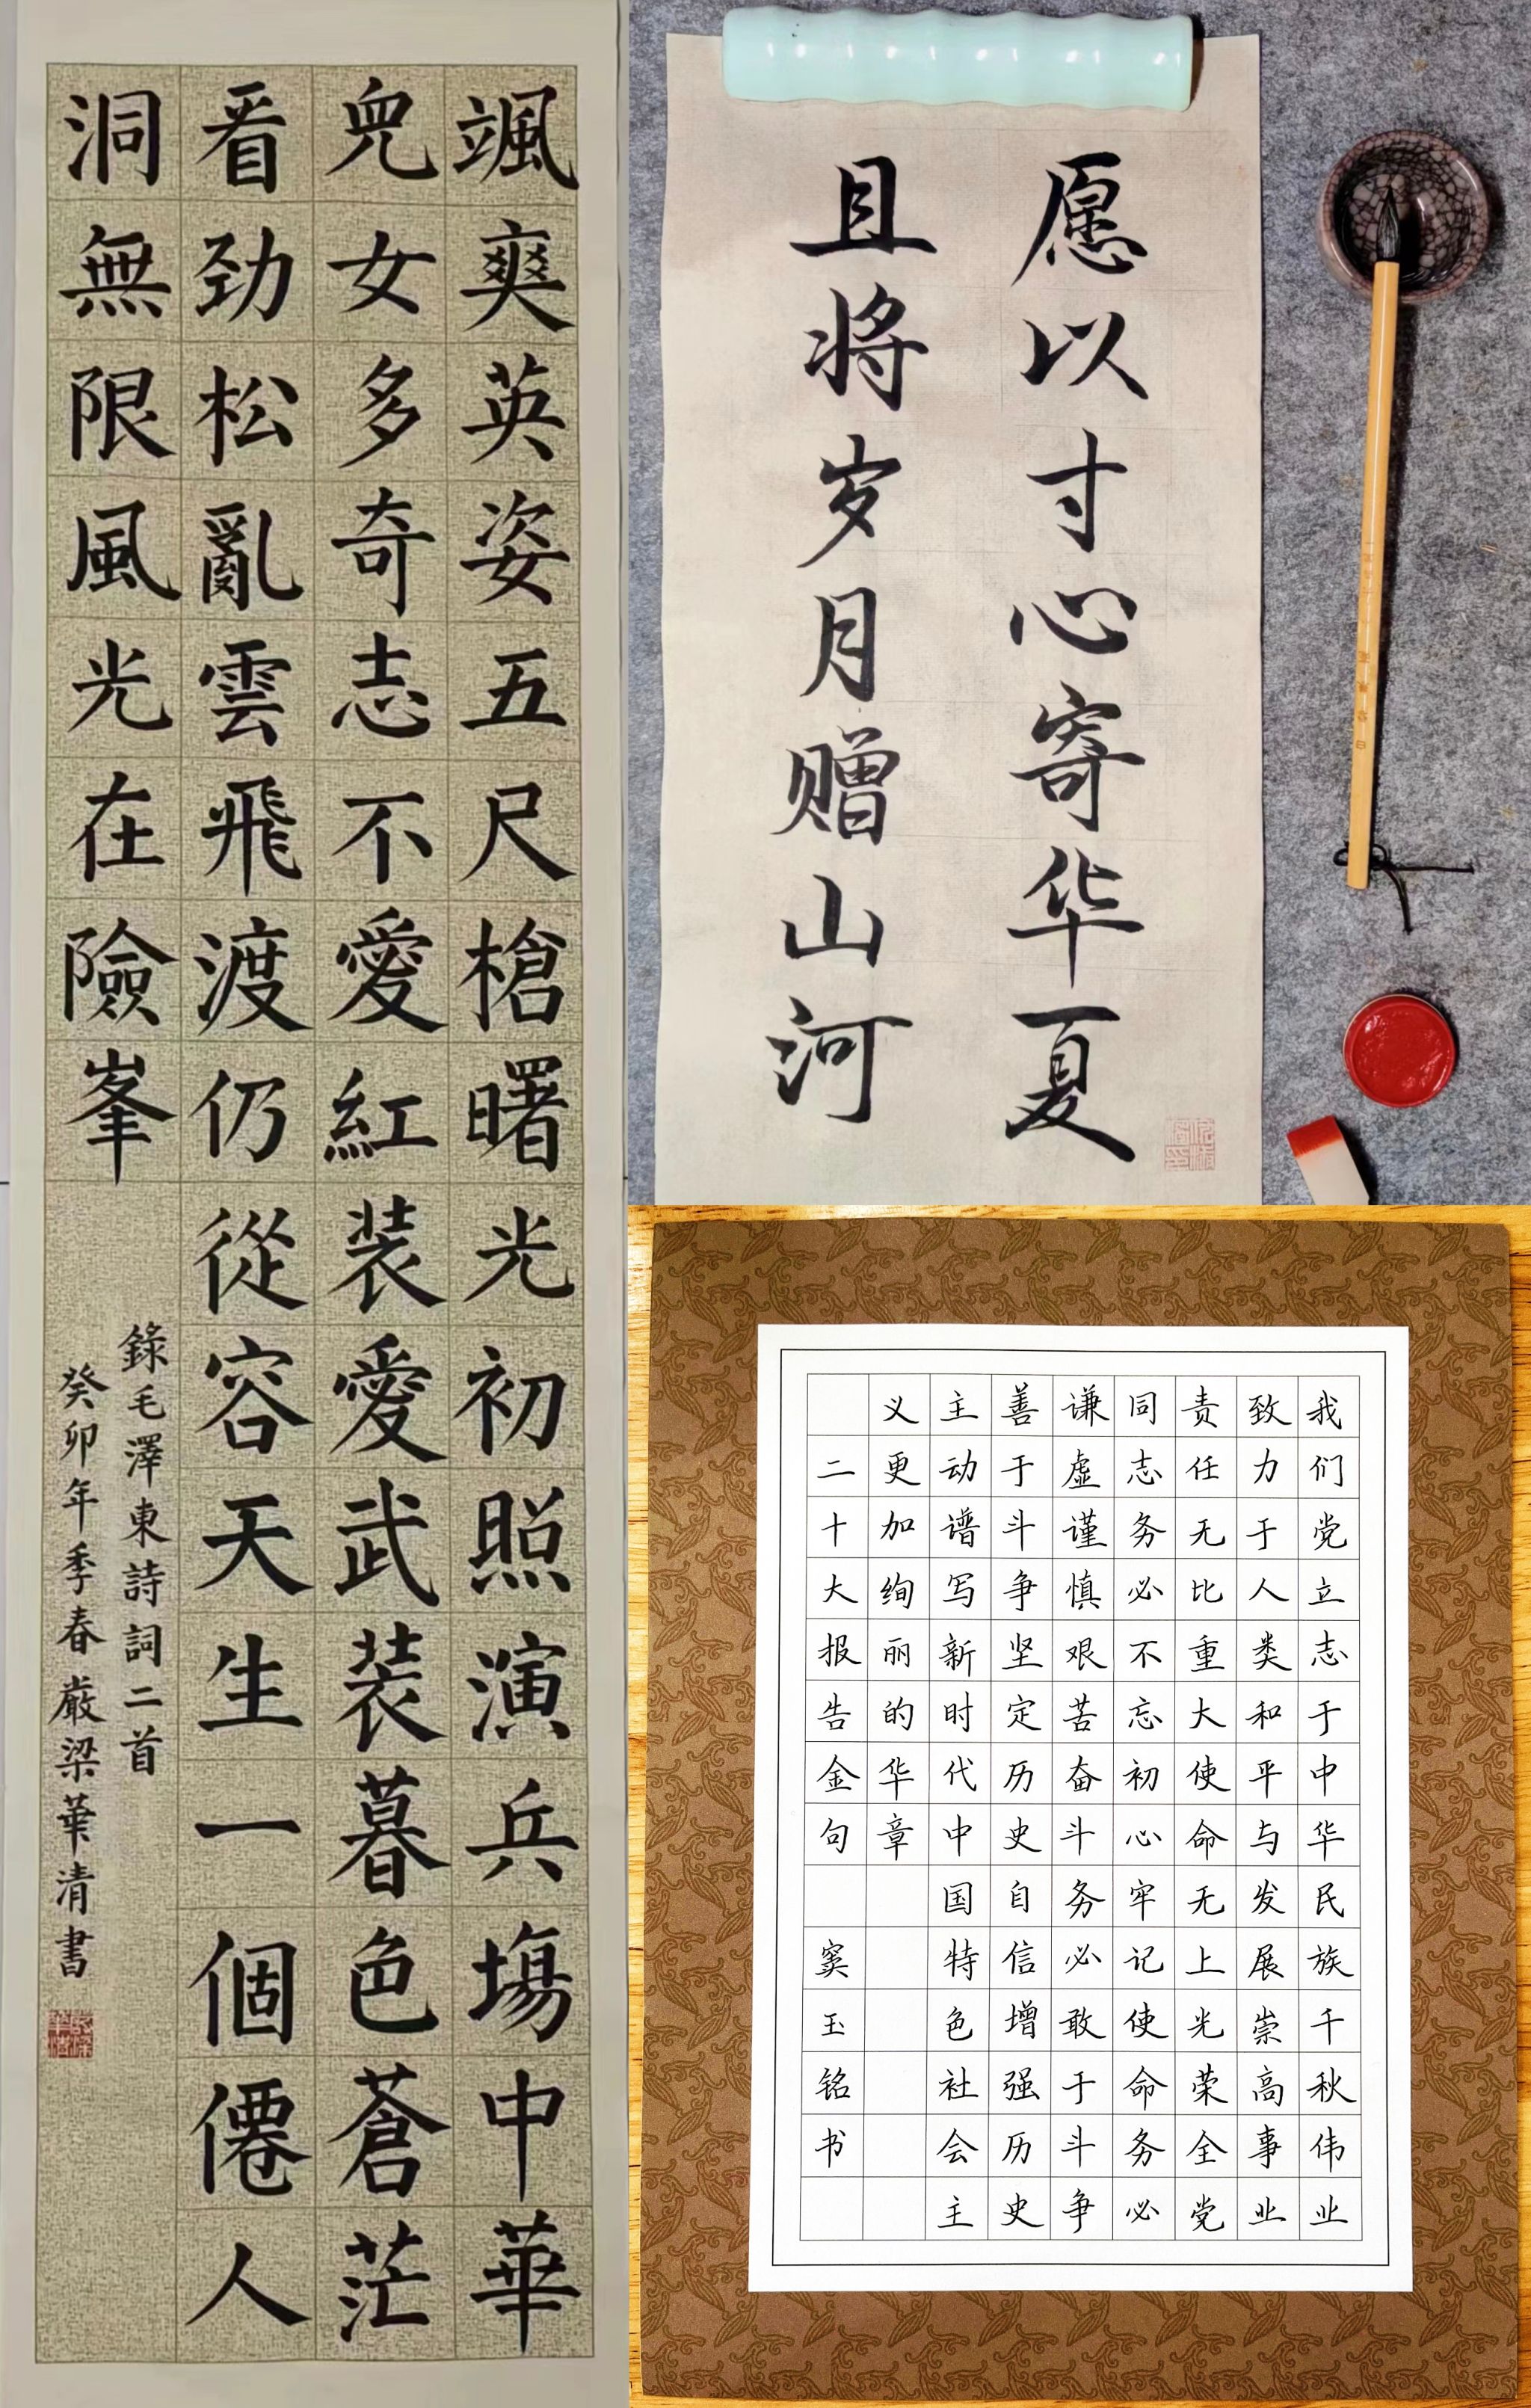 颯爽英姿五尺槍曙光初照演兵塲中華
兒女多奇志不愛紅装愛武装暮色蒼茫
看劲松亂雲飛渡仍從容天生一個僊人
洞無限風光在險峯
錄毛澤東詩詞二首
癸卯年季春嚴梁華清書
愿以寸心寄华夏
且将岁月赠山河
我们党立志于中华民族千秋伟业
致力于人类和平与发展崇高事业
责任无比重大使命无上光荣全党
同志务必不忘初心牢记使命务必
谦虚谨慎艰苦奋斗务必敢于斗争
善于斗争坚定历史自信增强历史
主动谱写新时代中国特色社会主
义更加绚丽的华章
二十大报告金句 窦玉铭书